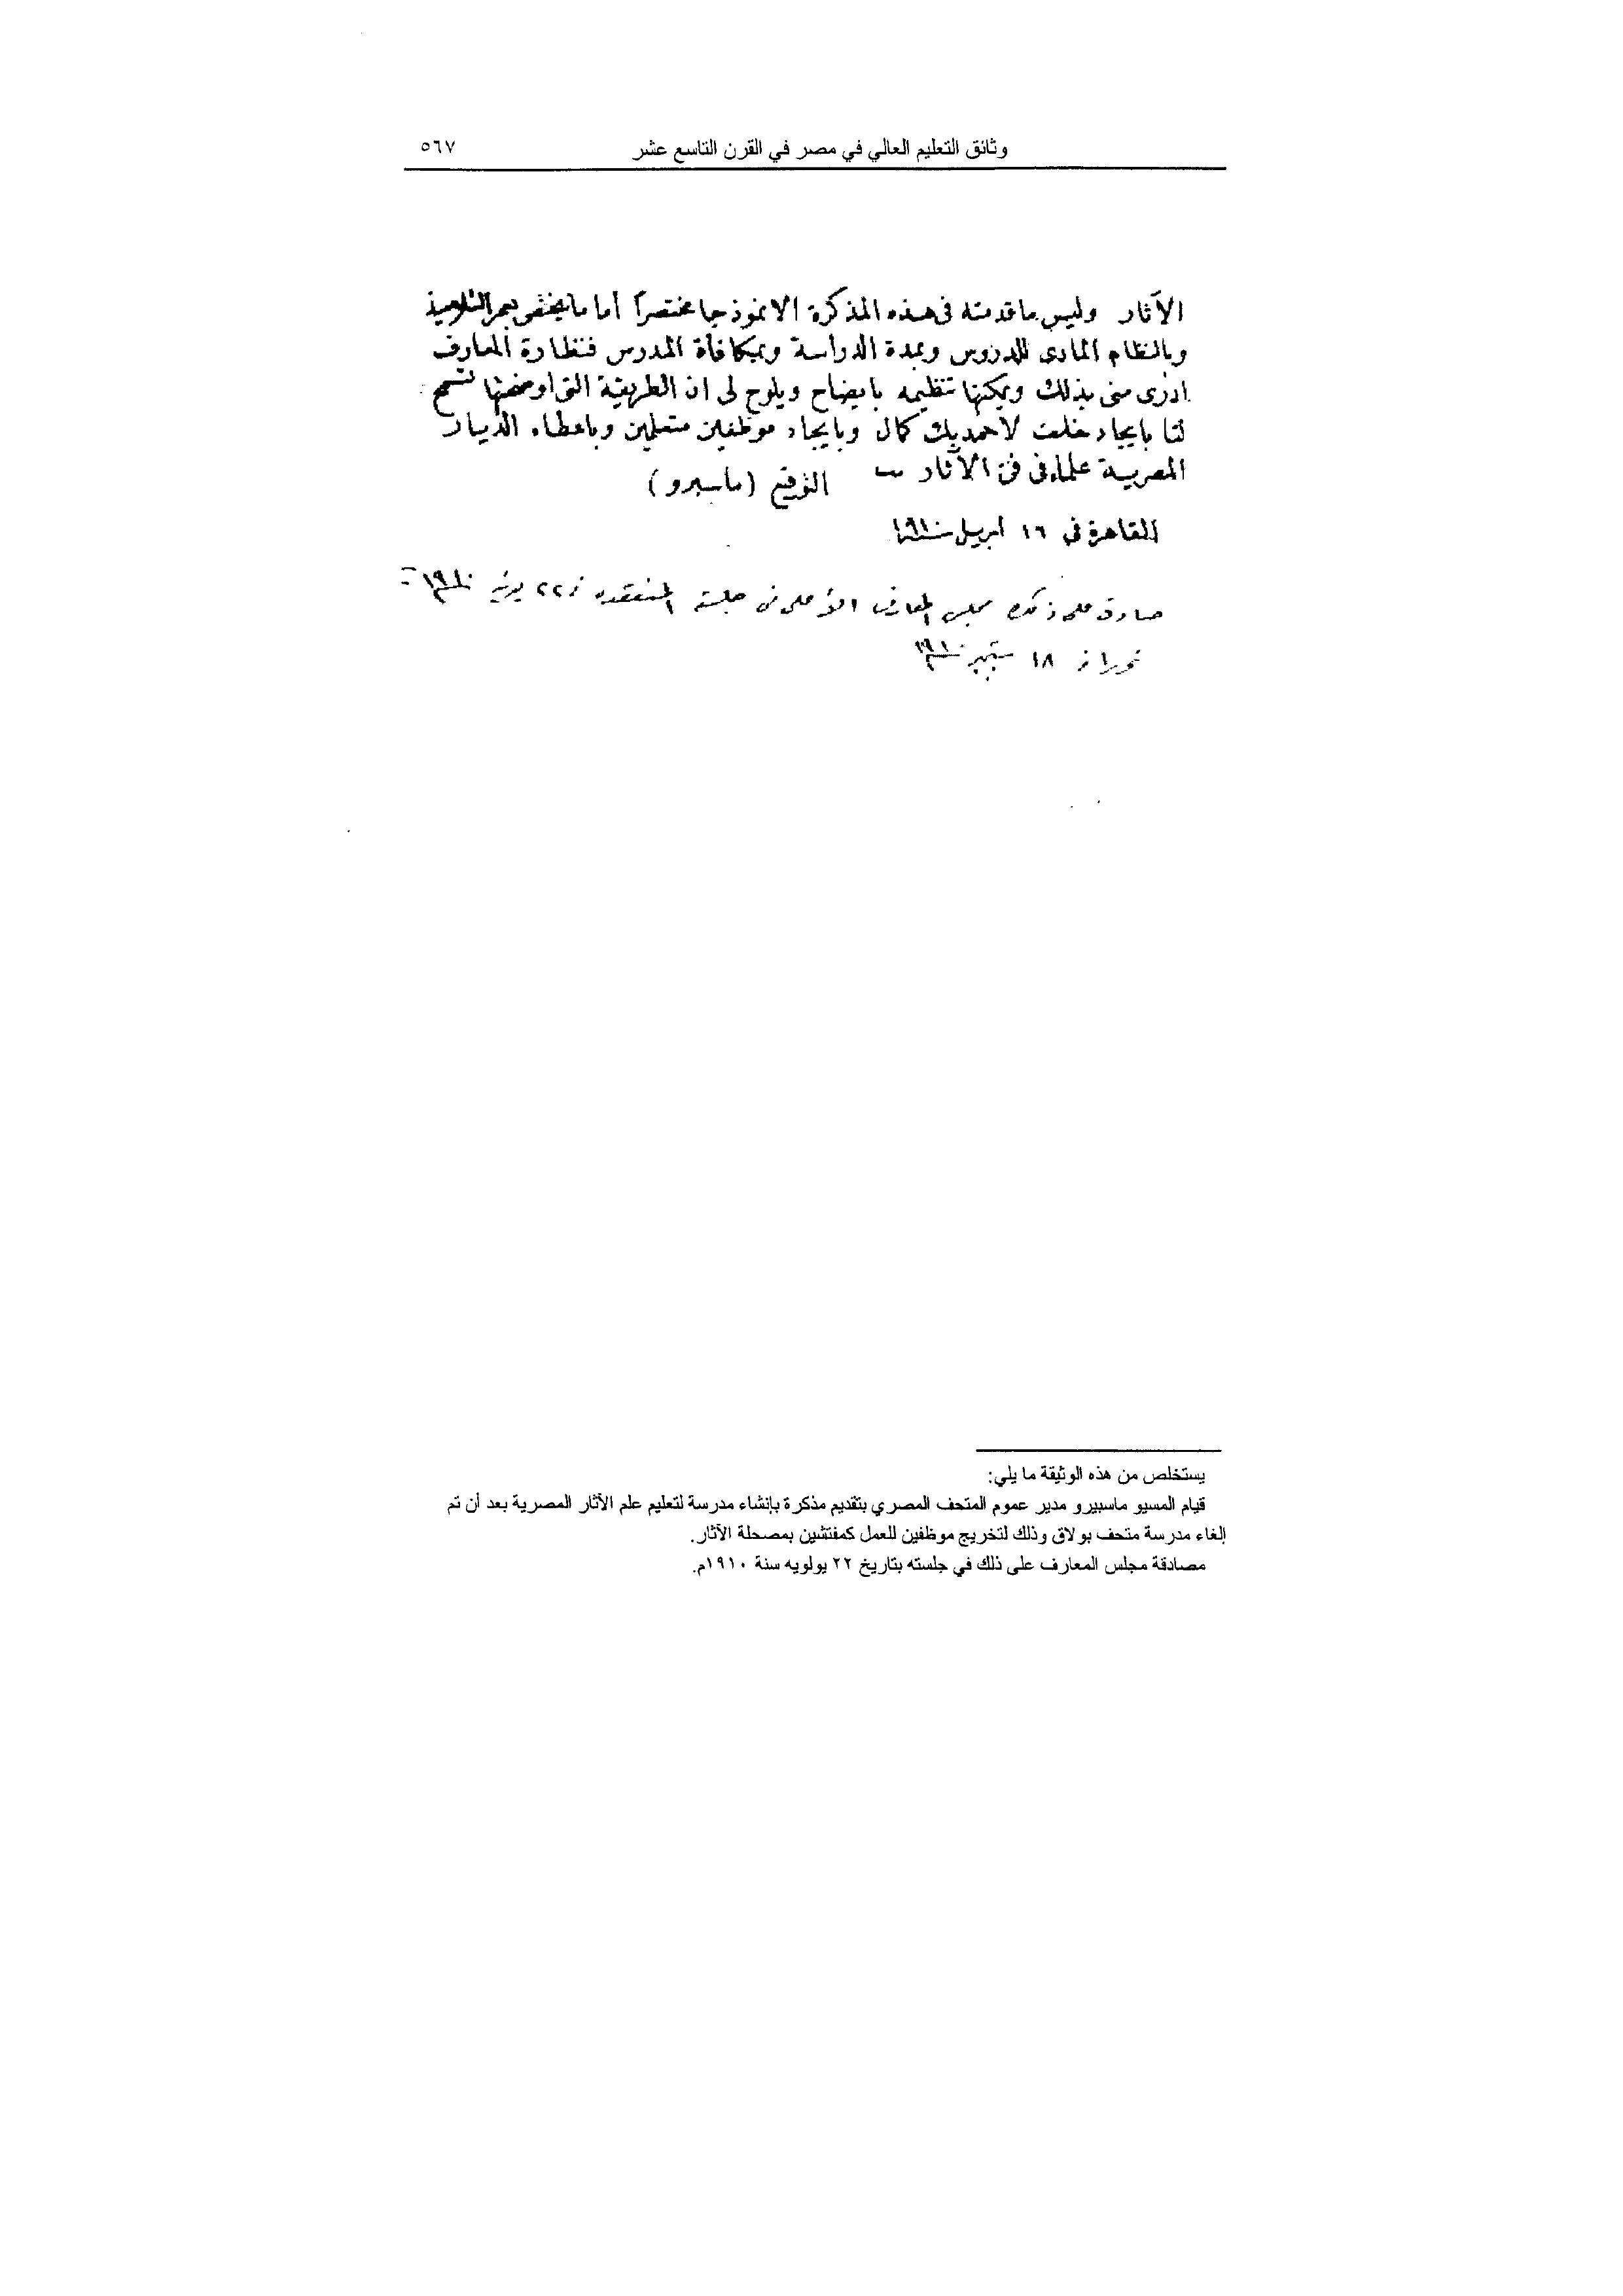 وثائق التعليم العالي في مصر في القرن التاسع عشر ٥٦٧
الآثار وليس ما قدمته فى هذه المذكرة الا نموذجا مختصرًا أما ما يختص بعمر التلاميذ
وبالنظام المادى للدروس وبمدة الدراسة وبمكافأة المدرس فنظارة المعارف
ادرى منى بذلك ويمكنها تنظيمه بايضاح ويلوح لى ان الطريقة التى اوضحتها تسمح
لنا بايجاد خلف لاحمد بك كمال وبايجاد موظفين متعلمين وباعطاء الديار
المصرية علماء فى فن الآثار
التوقيع (ماسبرو)
القاهرة فى ١٦ ابريل سنة ١٩١٠
صادق على ذلك مجلس المعارف الأعلى فى جلسته المنعقدة فى ٢٢ سنة ١٩١٠
تحريرا فى ١٨ سبتمبر سنة ١٩١٠
يستخلص من هذه الوثيقة ما يلي:
قيام المسيو ماسبيرو مدير عموم المتحف المصري بتقديم مذكرة بإنشاء مدرسة لتعليم علم الآثار المصرية بعد أن تم
إلغاء مدرسة متحف بولاق وذلك لتخريج موظفين للعمل كمفتشين بمصحلة الآثار.
مصادقة مجلس المعارف على ذلك في جلسته بتاريخ ٢٢ يولويه سنة ١٩١٠م.